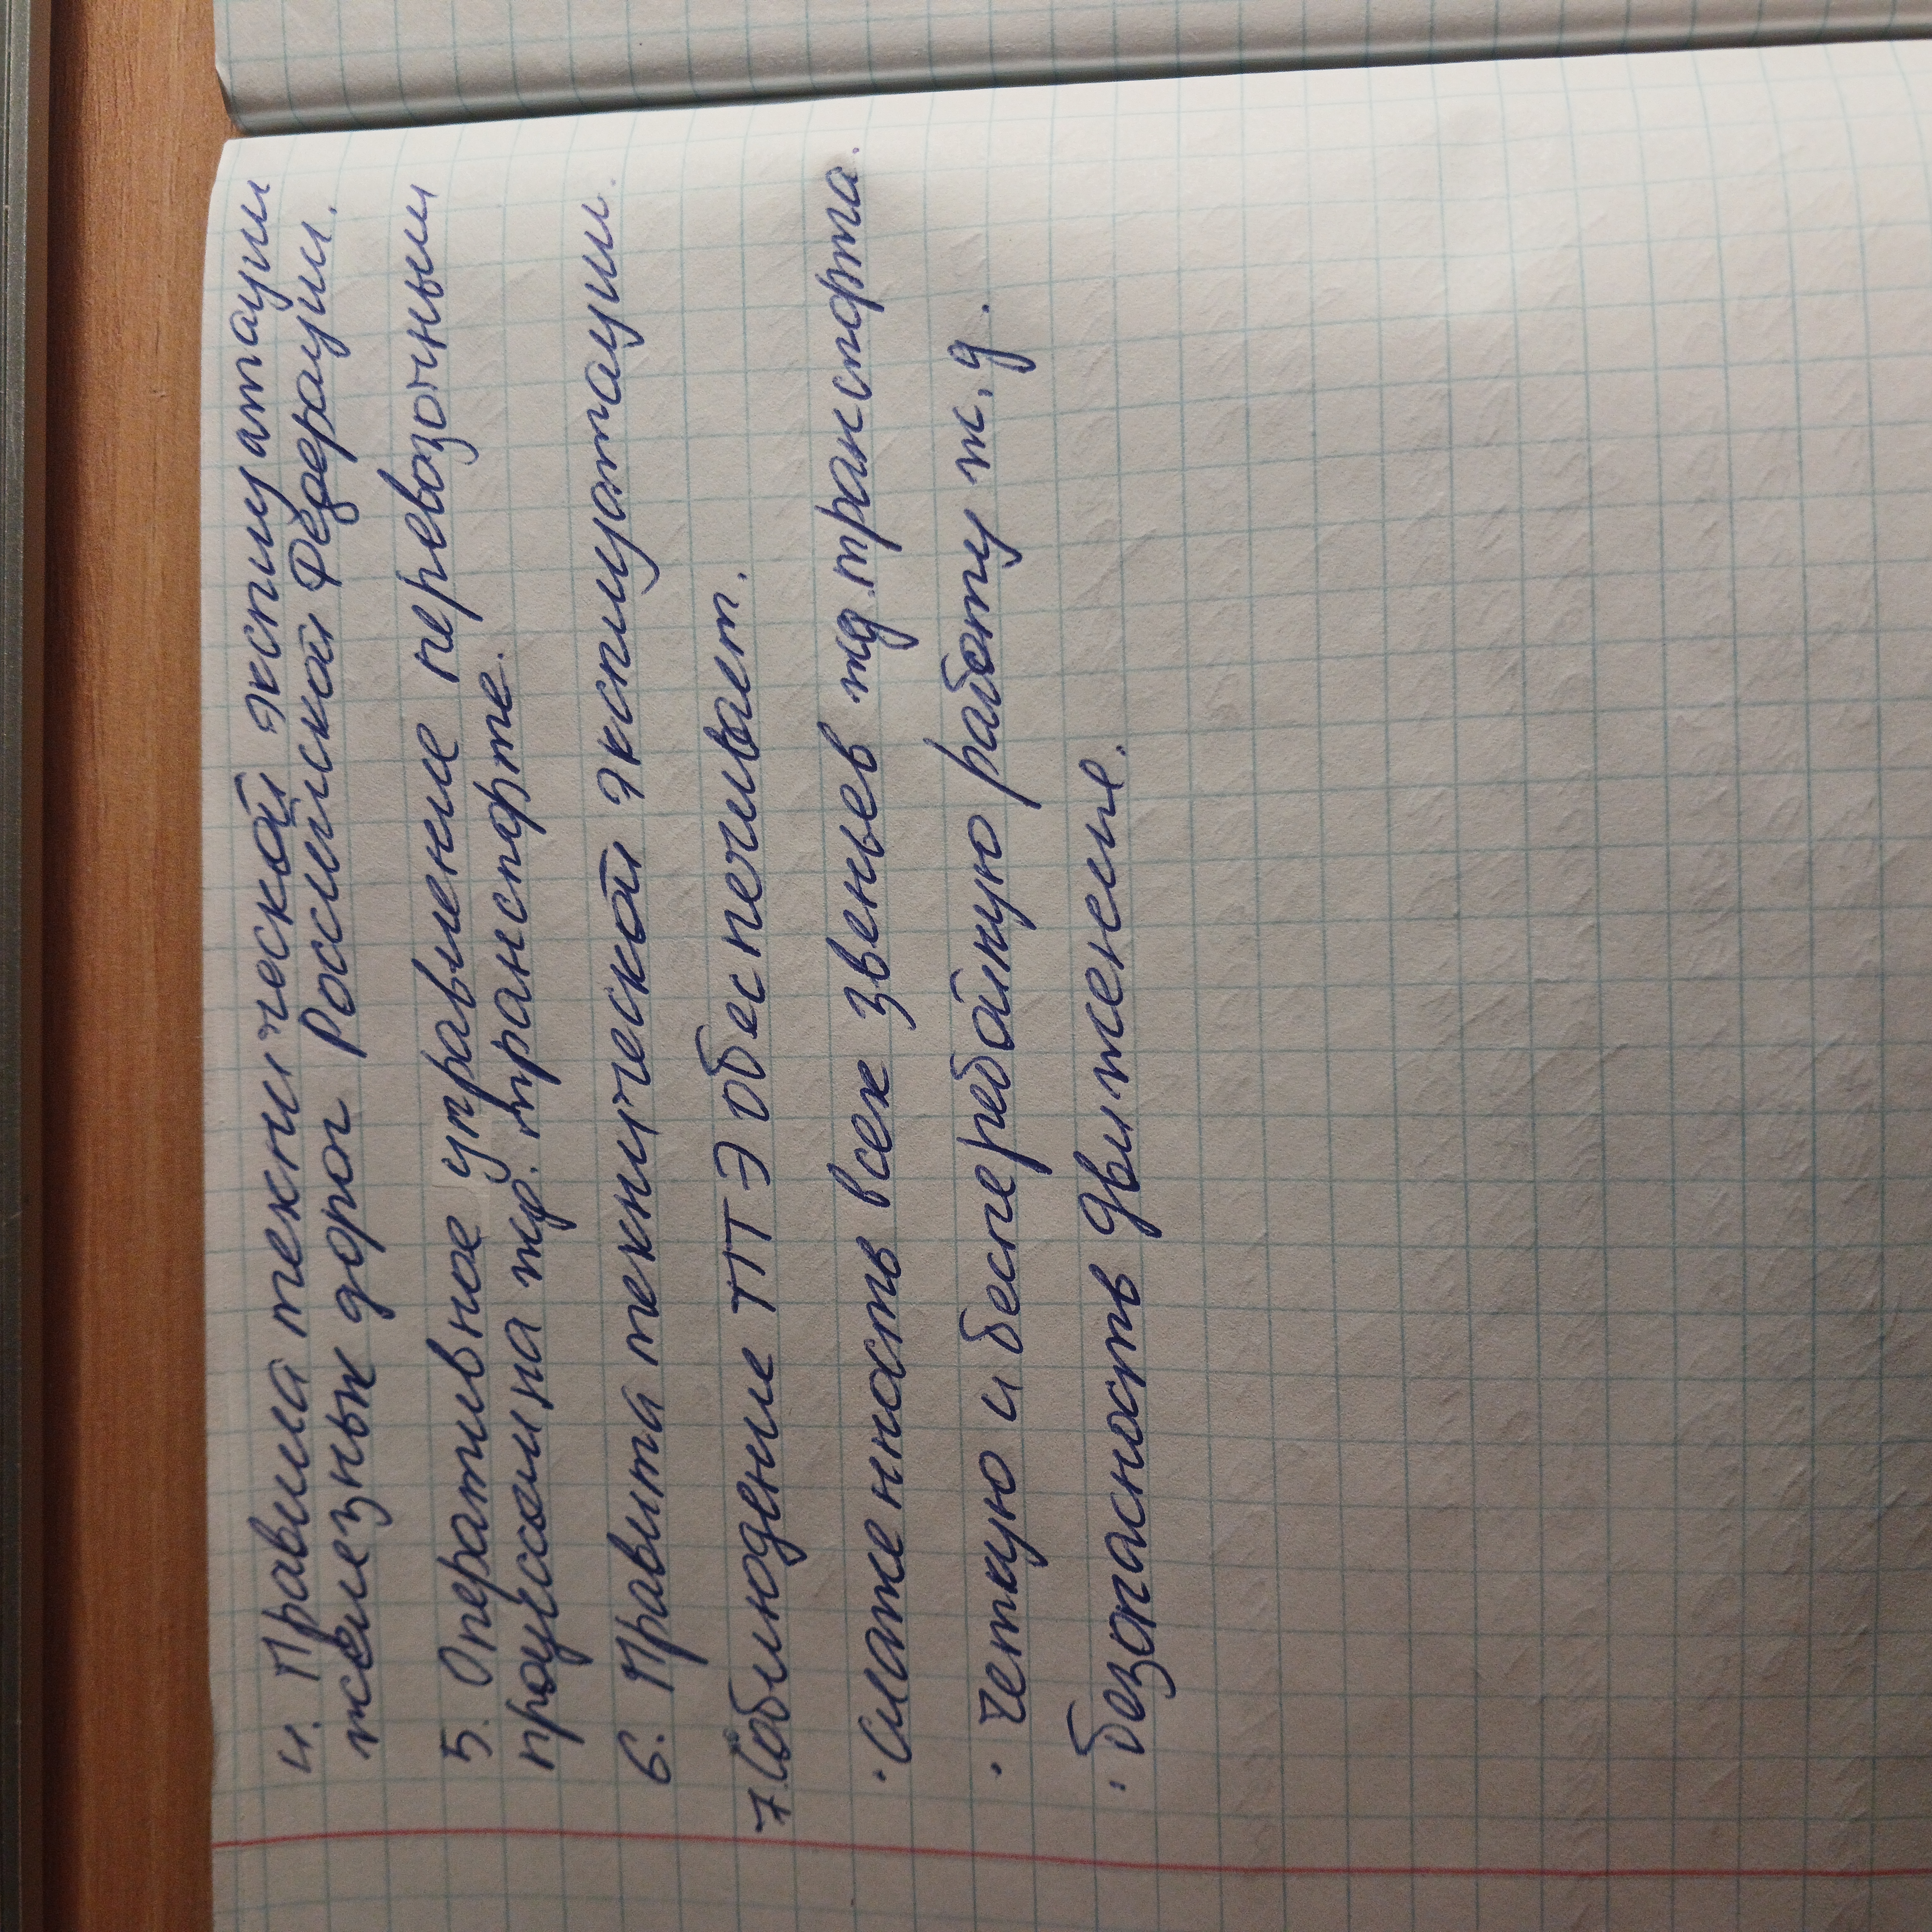 4. Правила технической эксплуатации
железных дорог Российской Федерации.
5. Оперативное управление перевозочным
процессом на жд. транспорте.
6. Правила технической эксплуатации.
7. Соблюдение ПТЭ обеспечивает.
· слаженность всех звеньев жд. транспорта.
· четкую и бесперебойную работу ж.д.
· безопасность движение.